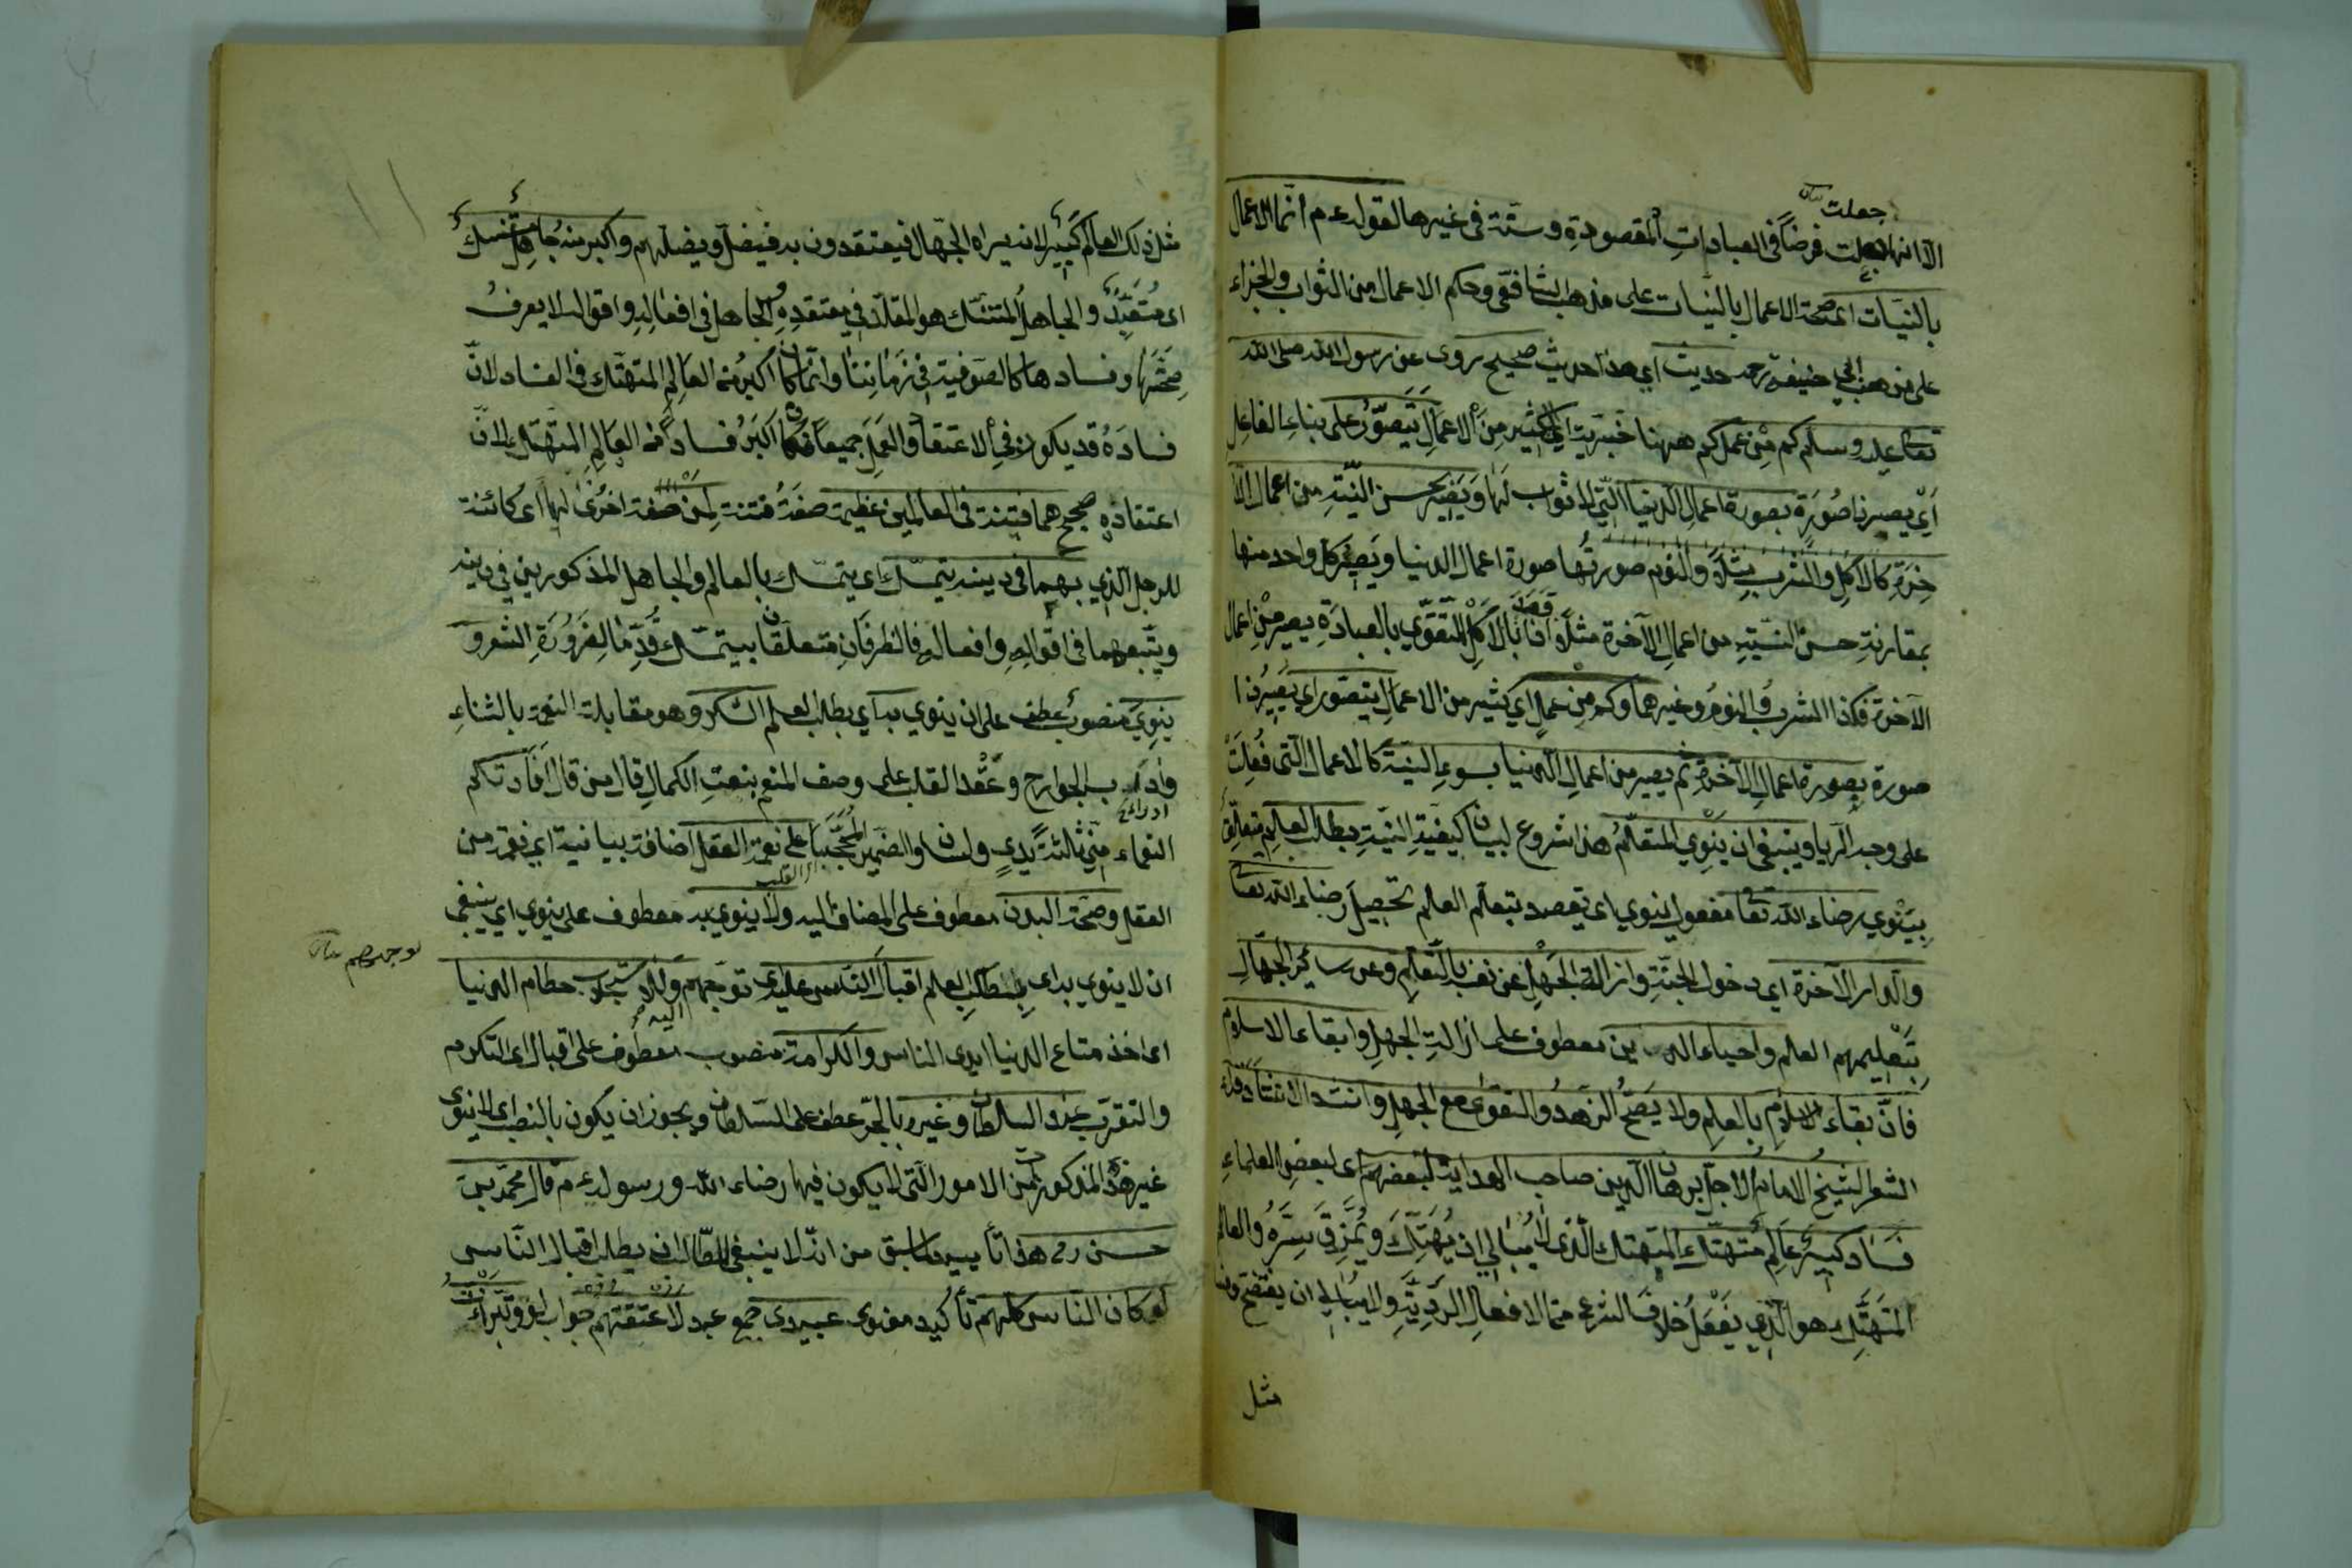 جعلت
الا انها جعلت فرضا في العبادات المقصودة وسنة في غيرها لقوله عم انما الاعمال
بالنيات اى صحة الاعمال بالنيات على مذهب الشافعي وحكم الاعمال من الثواب والجزاء
على مذهب ابي حنيفة رحمه حديث اي هذا حديث صحيح روى عن رسول الله صلى الله
تعالى عليه وسلم كم من عمل كم ههنا خبرية اي كثير من الاعمال يتصور على بناء الفاعل
اي يصير ذا صورة بصورة اعمال الدنيا التي لا ثواب لها ويصير بحسن النية من اعمال الا
خرة كالاكل والشرب مثلا والنوم صورتها صورة اعمال الدنيا ويصير كل واحد منها
بمقارنة حسن النية من اعمال الآخرة مثلا اذا قصد بالاكل التقوي بالعبادة يصير من اعمال
الآخرة فكذا الشرب والنوم وغيرهما وكم من عمل اي كثير من الاعمال يتصور اي يصير ذا
صورة بصورة اعمال الآخرة ثم يصير من اعمال الدنيا بسوء النية كالاعمال التي فعلت
على وجه الريا وينبغي ان ينوي المتعلم هذا شروع لبيان كيفية النية بطلب العلم متعلق
بينوي رضاء الله تعا مفعول ينوي اى يقصد بتعلم العلم تحصيل رضاء الله تعا
والدار الآخرة اي دخول الجنة وازالة الجهل عن نفسه بالتعلم وعن سائر الجهال
بتعليمهم العلم واحياء الدين معطوف على ازالة الجهل وابقاء الاسلام
فان بقاء الاسلام بالعلم ولا يصح الزهد والتقوى مع الجهل وانشد الاستاد
الشعر الشيخ الامام الاجل برهان الدين صاحب الهداية لبعضهم اى لبعض العلماء
فساد كبير عالم متهتك المتهتك الذي لا يبالي ان يهتك ويمزق ستره والعالم
المتهتك هو الذي يفعل خلاف الشرع من الافعال الردية ولا يبالي ان يفتضح
مثل
مثل ذلك العالم كبير لانه يراه الجهال فيعتقدون به فيضل ويضلهم واكبر منه جاهل متنسك
اى متعبد والجاهل المتنسك هو المقلد في معتقده الجاهل في افعاله واقواله لا يعرف
صحتها وفسادها كالصوفية في زماننا وانما كان اكبر من العالم المتهتك في الفساد لان
فساده قد يكون في الاعتقاد والعمل جميعا فكان اكبر فسادا من العالم المتهتك لان
اعتقاده صحيح هما فتنة في العالمين عظيمة صفة فتنة لمن صفة اخرى لها اى كائنة
للرجل الذي بهما في دينه يتمسك اى يتمسك بالعالم والجاهل المذكورين في دينه
ويتبعهما في اقواله وافعاله فالظرفان متعلقان بيتمسك قدما لضرورة الشعر و
ينوي منصوب عطف على ان ينوي به اي بطلب العلم الشكر وهو مقابلة النعمة بالثناء
واداب الجوارح وعقد القلب على وصف المنعم بنعت الكمال قال من قال افادتكم
النعماء مني ثلثة يدي ولساني والضمير المحجبا على نعمة العقل اضافة بيانية اي نعمة من
العقل وصحة البدن معطوف على المضاف اليه ولا ينوي به معطوف على ينوي اي ينبغي
ان لا ينوي به اى بطلب العلم اقبال الناس عليه اى توجههم اليه ولا استجلاب حطام الدنيا
توجههم
اى اخذ متاع الدنيا ايدى الناس والكرامة منصوب معطوف على اقبال اى التكرم
والتقرب عند السلطان وغيره بالجر عطف على السلطان ويجوز ان يكون بالنصب اى لا ينوى
غير هذه المذكور من الامور التى لا يكون فيها رضاء الله ورسوله عم قال محمد بن
حسن رح هذا تأييد ما سبق من انه لا ينبغي للطالب ان يطلب اقبال الناس
لو كان الناس كلهم تأكيد معنوى عبيدى جمع عبد لاعتقتهم جواب لو وتبرأت